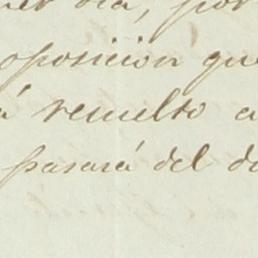 día, por
oposicion que
á resuelto a
pasará del d